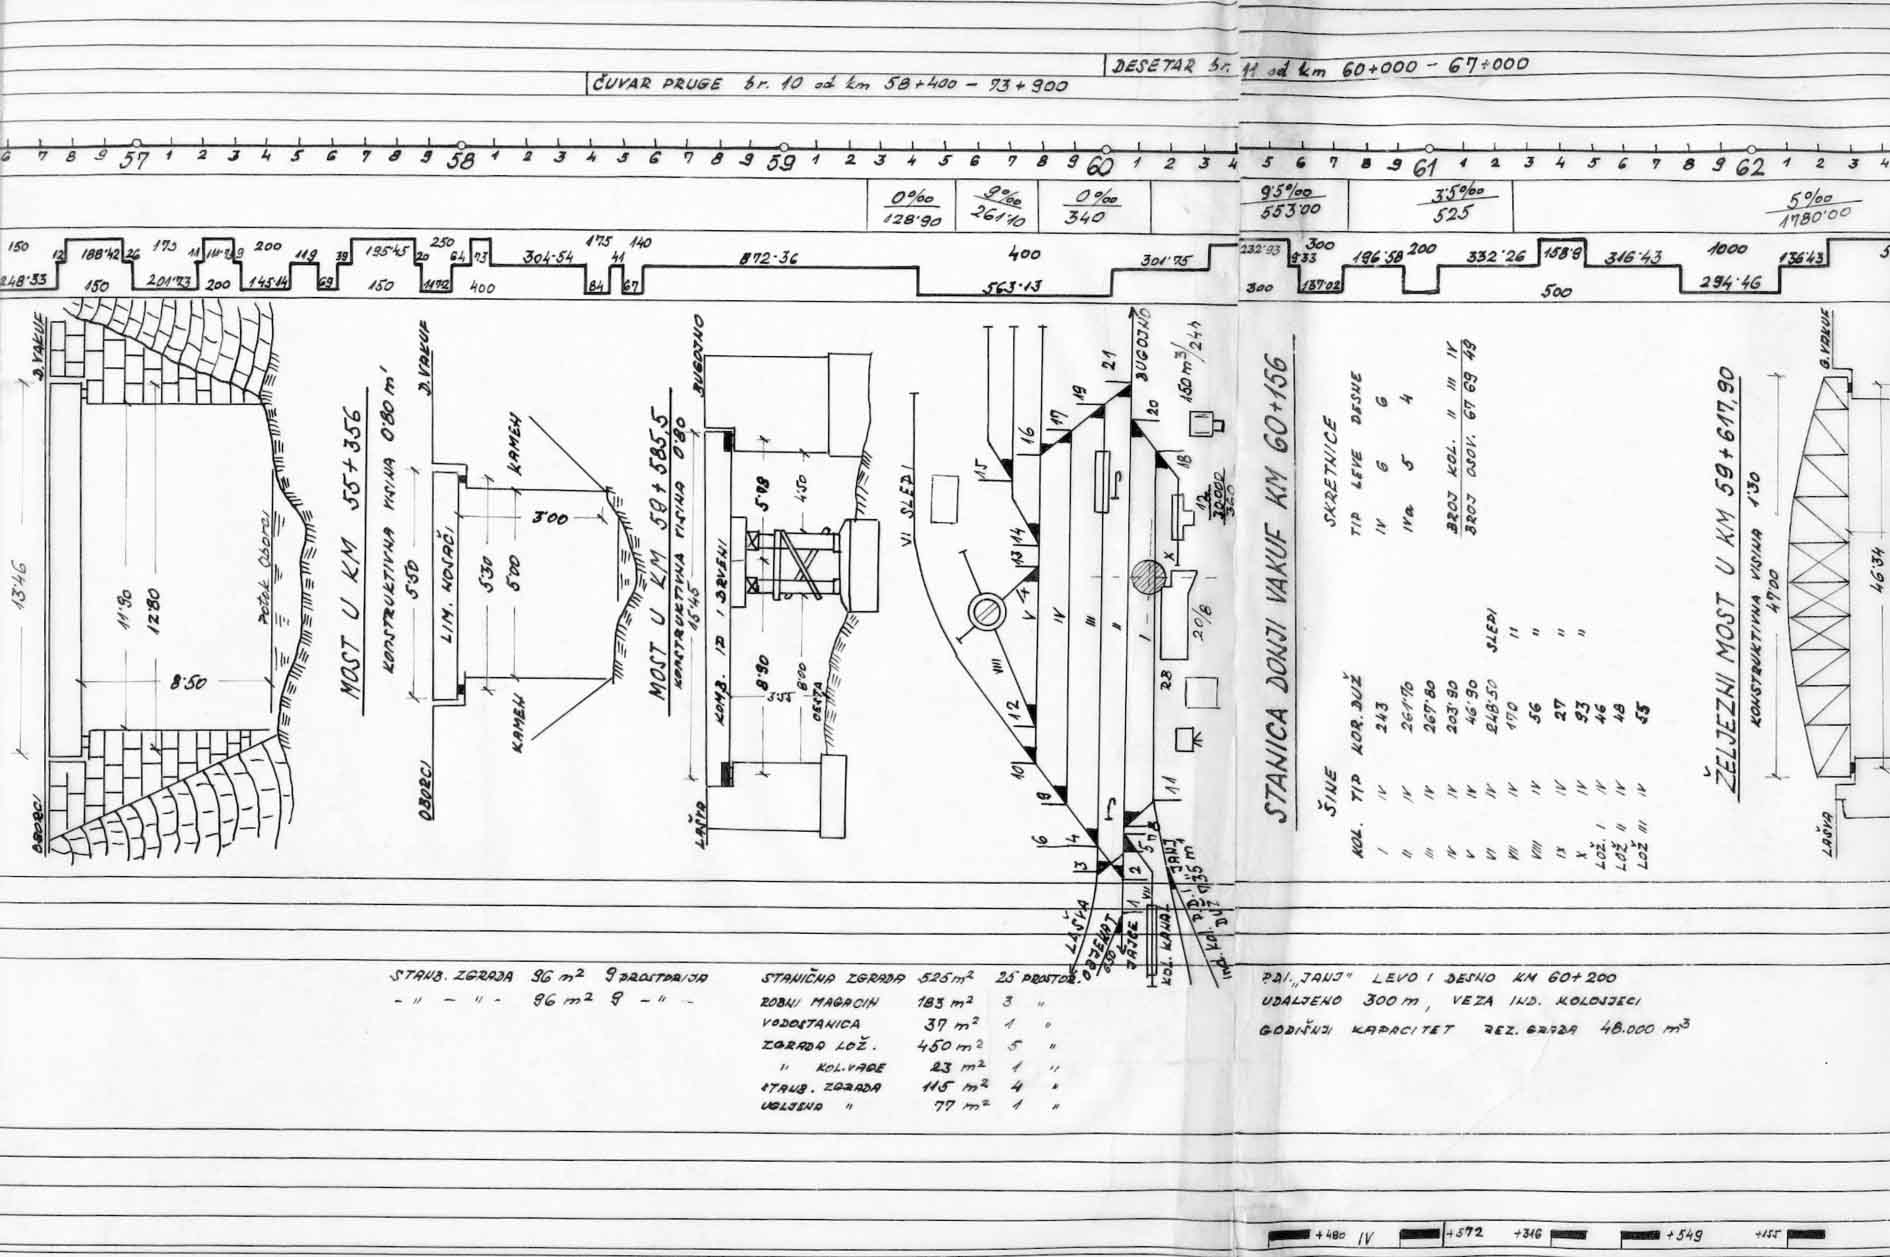 DESETAR br. 11 od km 60+000 - 67+000
ČUVAR PRUGE br. 10 od km 58+400 - 73+900
6 7 8 9 57 1 2 3 4 5 6 7 8 9 58 1 2 3 4 5 6 7 8 9 59 1 2 3 4 5 6 7 8 9 60 1 2 3 4 5 6 7 8 9 61 1 2 3 4 5 6 7 8 9 62 1 2 3 4
0‰ 9‰ 0‰ 9.5‰ 3.5‰ 5‰
128.90 261.10 340 553.00 525 1780.00
150 12 188.42 26 173 11 9 200 119 39 195.45 20 250 64 73 304.54 175 41 140 872.36 400 301.75 232.93 300 196.58 200 332.26 158.9 316.43 1000 136.43 5
248.33 150 201.73 200 145.14 69 150 400 84 67 563.13 300 137.02 500 294.46
D. VAKUF
13.46
11.90
12.80
8.50
Potok Oborci
OBORCI
MOST U KM 55+356
KONSTRUKTIVNA VISINA 0.80 m'
D. VAKUF
5.50
LIM. NOSAČI
5.30
5.00
3.00
KAMEN
KAMEN
OBORCI
MOST U KM 59+585,5
KONSTRUKTIVNA VISINA 0.80
BUGOJNO
15.45
KOMB. IP I DRVENI
5.98
4.50
8.90
8.00
CESTA
LAŠVA
VI SLEDI
BUGOJNO
150 m³/24h
21
19
17
16
15
14
13
20
18
12
30.000
360
X
V
IV
III
II
I
VIII
20/8
28
12
10
9
6
4
3
11
5
2
1
VII
LAŠVA
OBJEKAT
650
JAJCE
KOL. KANAL
Ind. kol. P.D.I. "JANJ"
STANICA DONJI VAKUF KM 60+156
SKRETNICE
TIP LEVE DESNE
IV 6 6
IVa 5 4
BROJ KOL. II III IV
BROJ OSOV. 67 69 49
ŠINE
KOL. TIP KOR. DUŽ
I IV 243
II IV 261.70
III IV 267.80
IV IV 203.90
V IV 46.90
VI IV 248.50 SLEDI
VII IV 170 "
VIII IV 56 "
IX IV 27 "
X IV 93 "
LOŽ. I IV 46
LOŽ II IV 48
LOŽ III IV 55
ŽELJEZNI MOST U KM 59+617,90
KONSTRUKTIVNA VISINA 1.30
47.00
46.34
D. VAKUF
LAŠVA
STANB. ZGRADA 96 m² 9 PROSTORIJA
- " - " - 96 m² 9 - " -
STANIČNA ZGRADA 525 m² 25 PROSTOR.
ROBNI MAGACIN 183 m² 3 "
VODOSTANICA 37 m² 1 "
ZGRADA LOŽ. 450 m² 5 "
" KOL. VAGE 23 m² 1 "
STANB. ZGRADA 115 m² 4 "
UGLJENA " 77 m² 1 "
P.D.I. "JANJ" LEVO I DESNO KM 60+200
UDALJENO 300 m, VEZA IND. KOLOSJECI
GODIŠNJI KAPACITET REZ. GRAĐA 48.000 m³
+480 IV +572 +316 +549 +155